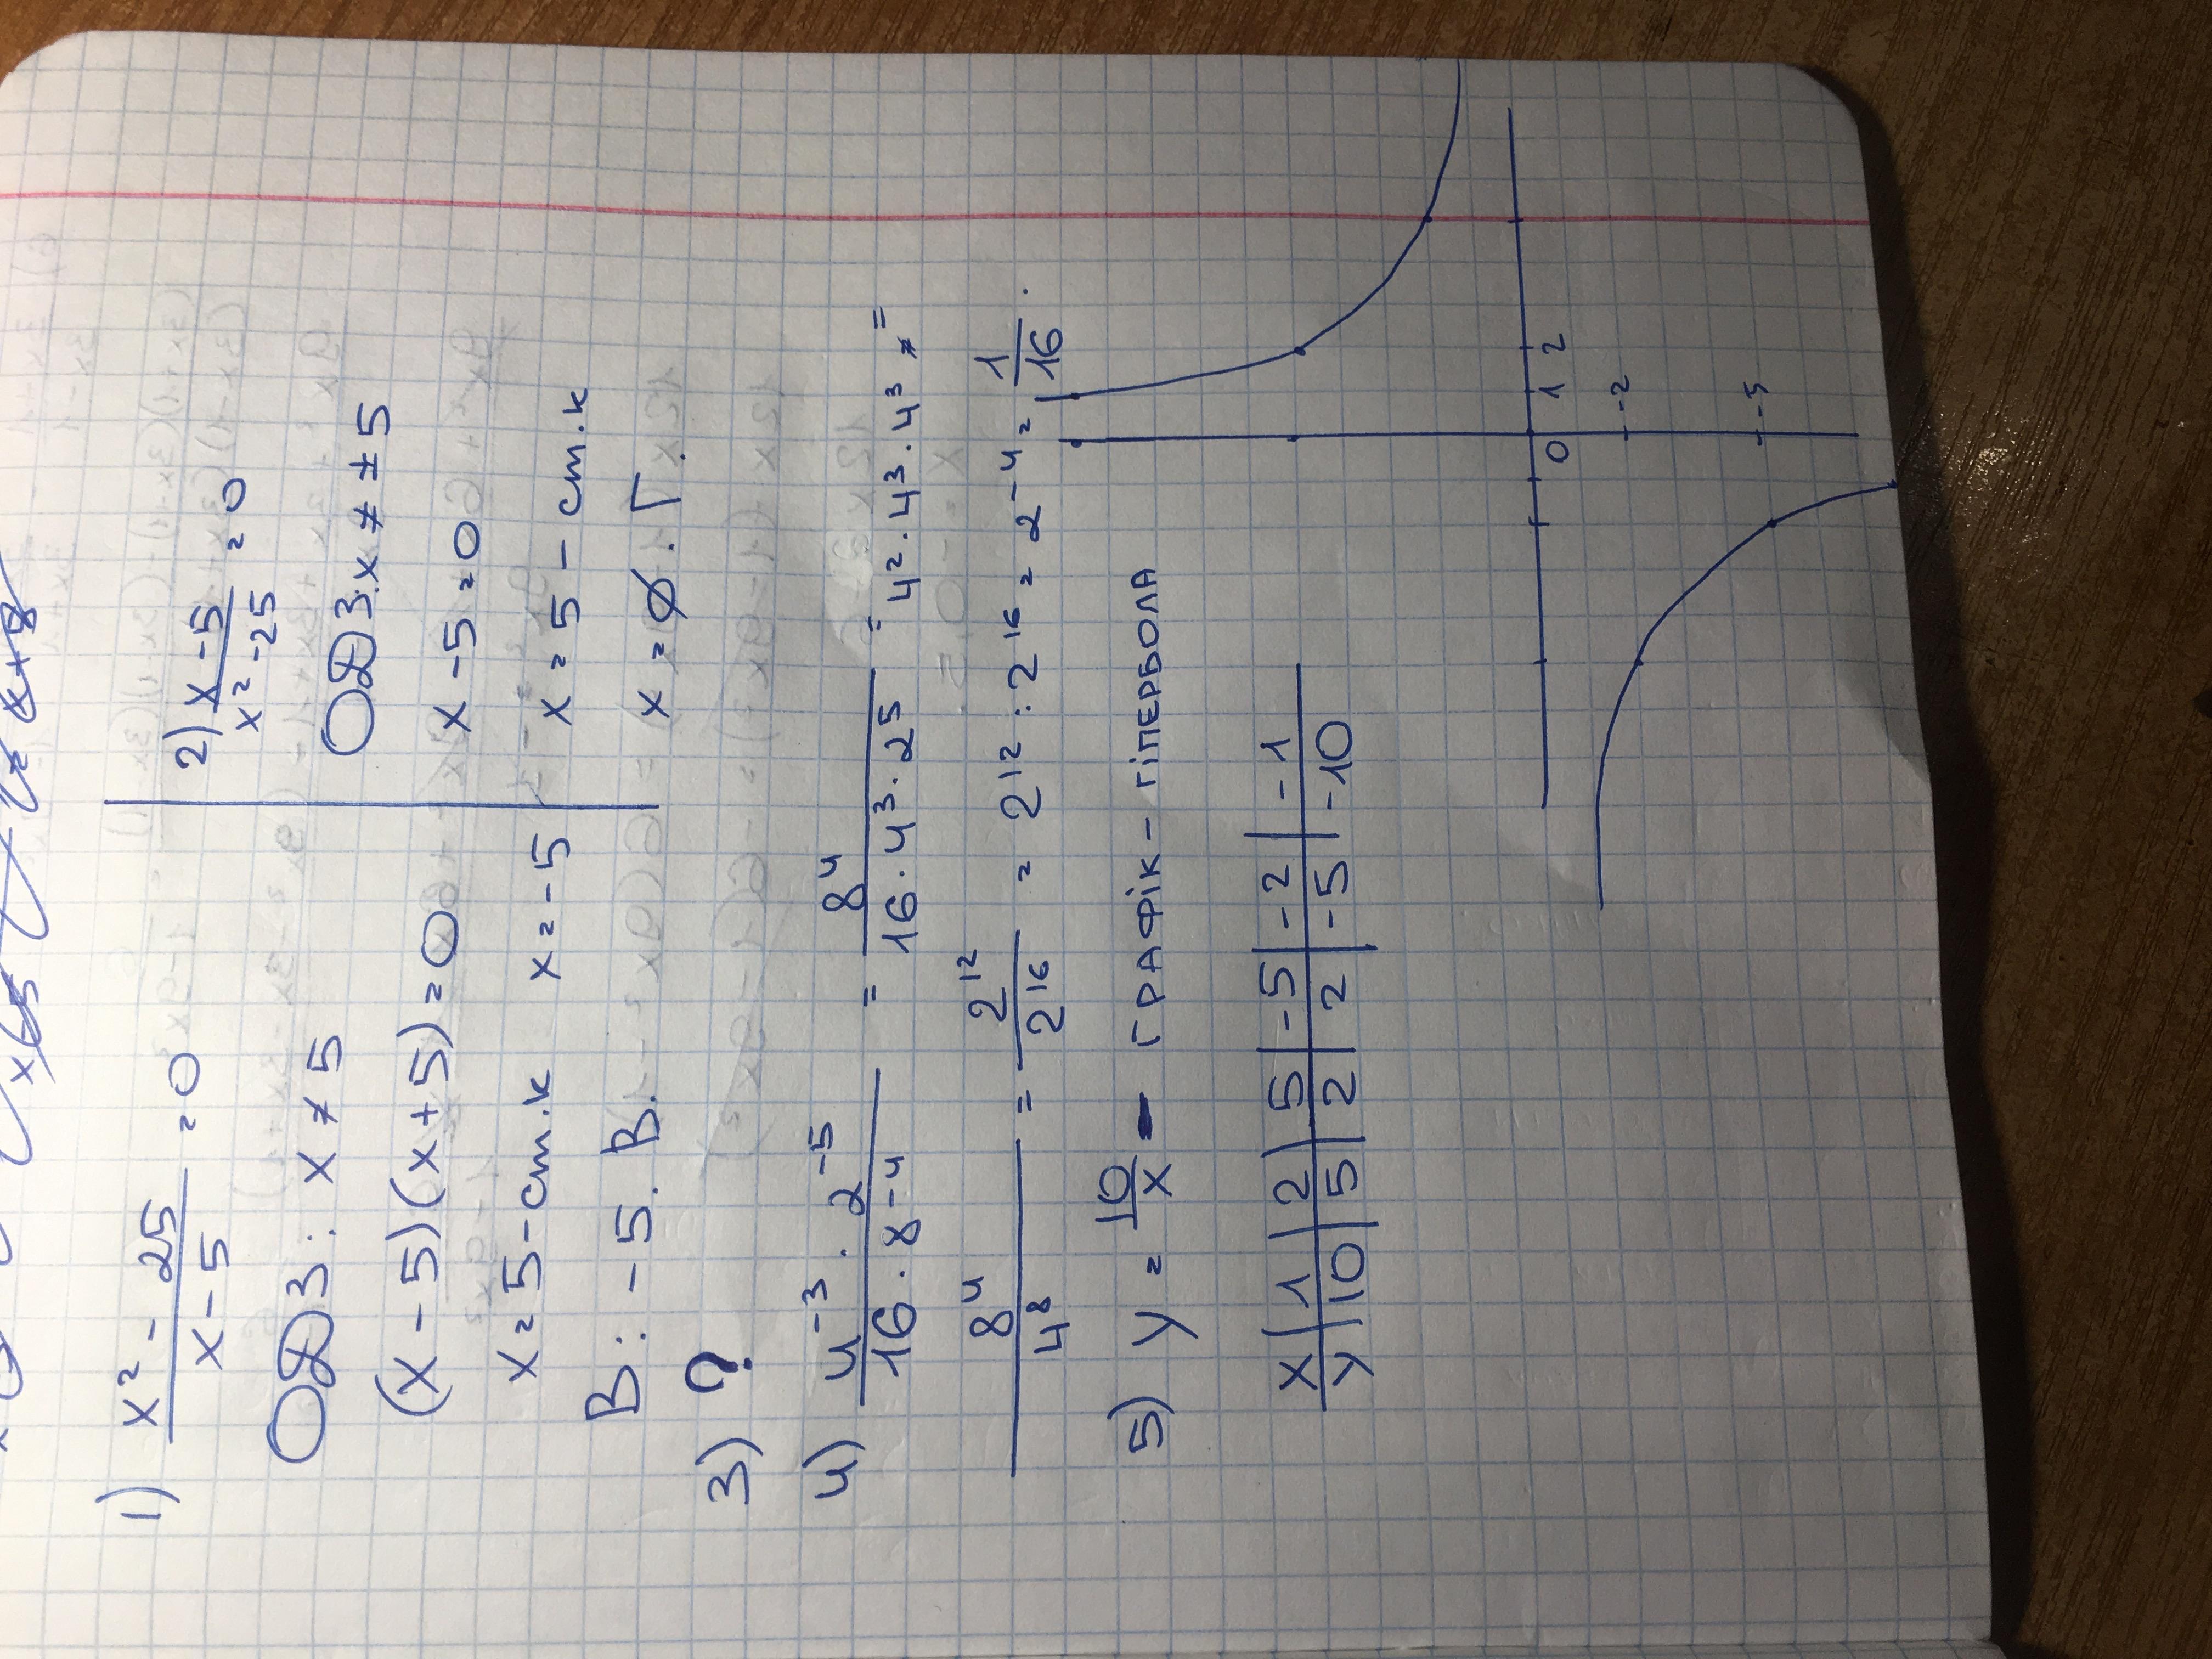 1) x² - 25 / x - 5 = 0
ОДЗ: x ≠ 5
(x - 5)(x + 5) = 0
x = 5 - ст.к x = -5
В: -5. В.
2) x - 5 / x² - 25 = 0
ОДЗ: x ≠ ± 5
x - 5 = 0
x = 5 - ст.к
x = ∅. Г.
3) ?
4) 4⁻³ · 2⁻⁵ / 16 · 8⁻⁴ = 8⁴ / 16 · 4³ · 2⁵ = 4² · 4³ · 4³ =
8⁴ / 4⁸ = 2¹² / 2¹⁶ = 2¹² : 2¹⁶ = 2⁻⁴ = 1/16.
5) y = 10/x - ГРАФІК - ГІПЕРБОЛА
x | 1 | 2 | 5 | -5 | -2 | -1
y | 10 | 5 | 2 | 2 | -5 | -10
0 1 2
-2
-5